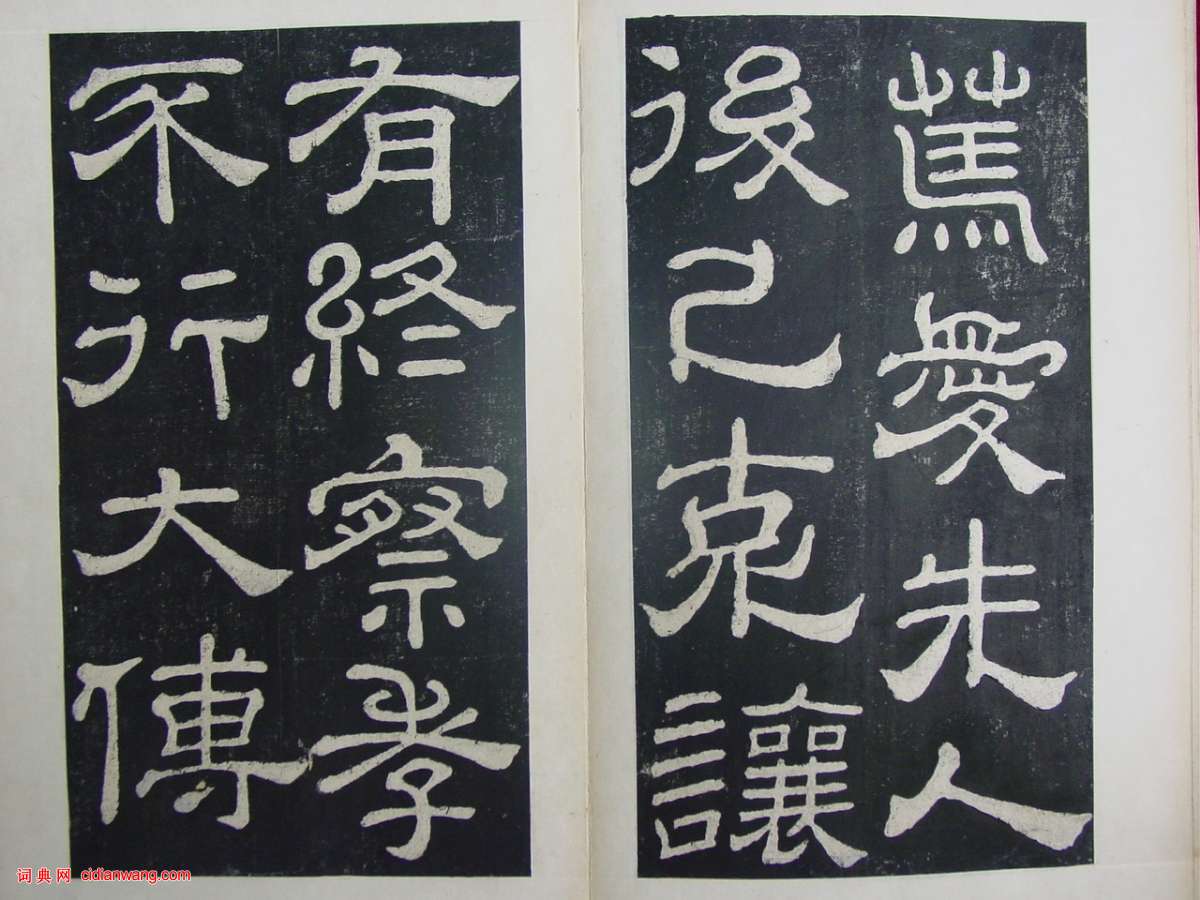 䔍愛先人
後己克讓
有終察孝
不行大傅
词典网 cidianwang.com